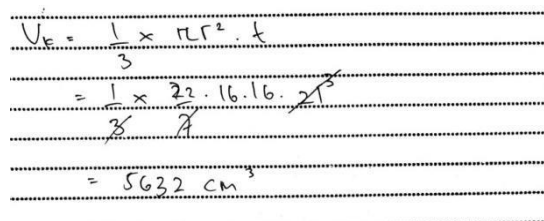 V_k = 1/3 × πr² · t
= 1/3 × 22/7 · 16 · 16 · 21³
= 5632 cm³